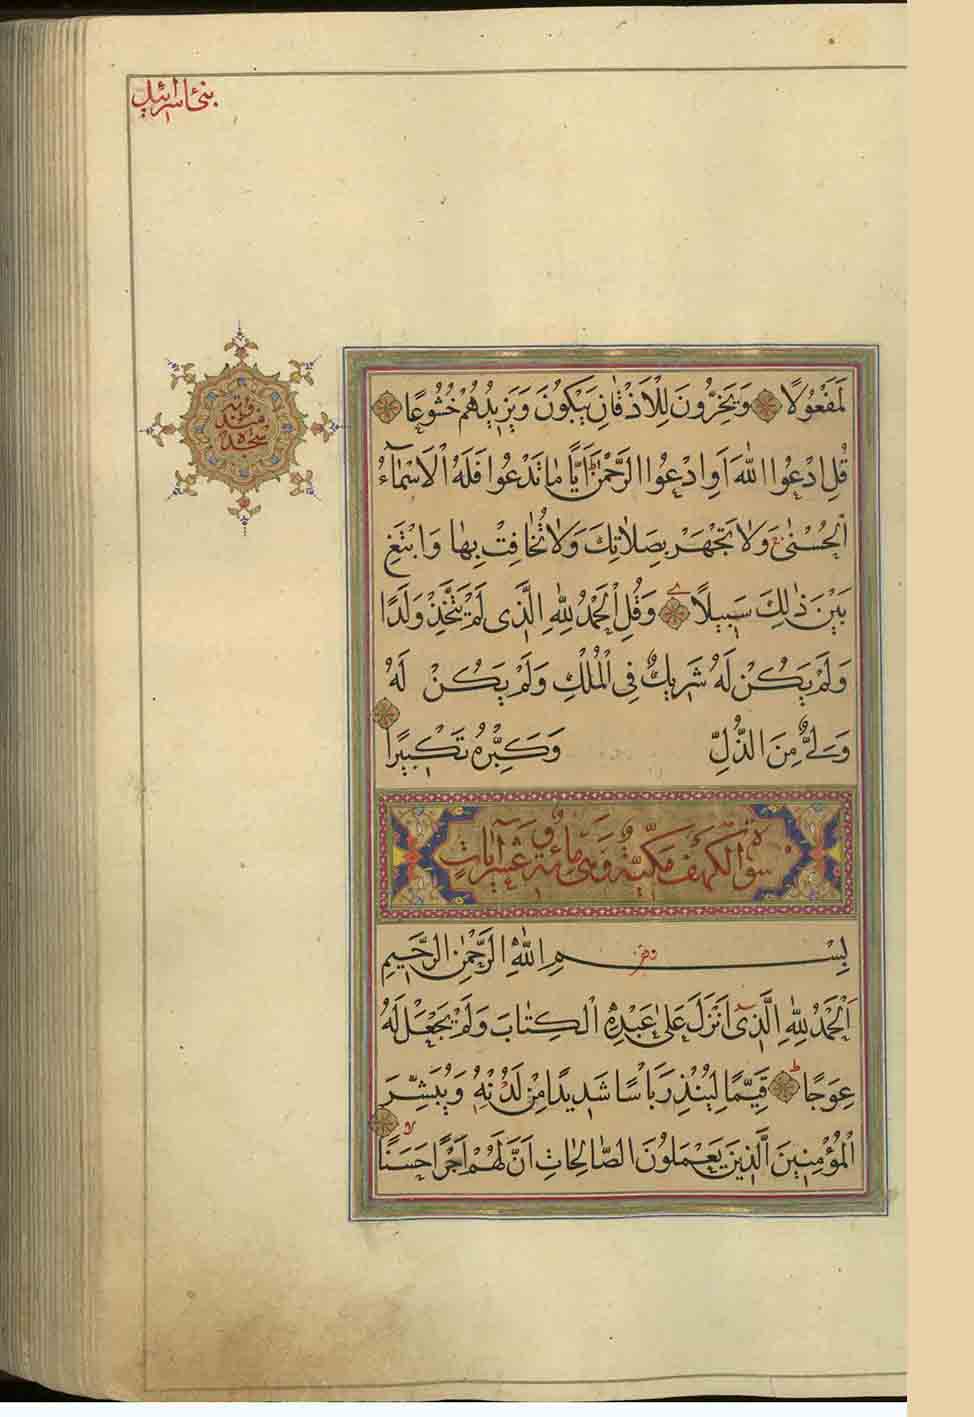 بنی اسرائیل
لَمَفْعُولًا وَيَخِرُّونَ لِلْاَذْقَانِ يَبْكُونَ وَيَزِيدُهُمْ خُشُوعًا
قُلِ ادْعُوا اللّٰهَ اَوِ ادْعُوا الرَّحْمٰنَ اَيًّا مَا تَدْعُوا فَلَهُ الْاَسْمَآءُ
الْحُسْنٰى وَلَا تَجْهَرْ بِصَلَاتِكَ وَلَا تُخَافِتْ بِهَا وَابْتَغِ
بَيْنَ ذٰلِكَ سَبِيلًا وَقُلِ الْحَمْدُ لِلّٰهِ الَّذِى لَمْ يَتَّخِذْ وَلَدًا
وَلَمْ يَكُنْ لَهُ شَرِيكٌ فِى الْمُلْكِ وَلَمْ يَكُنْ لَهُ
وَلِىٌّ مِنَ الذُّلِّ وَكَبِّرْهُ تَكْبِيرًا
سورة الكهف مكّيّة وهى مائة وعشر آيات
بِسْمِ اللّٰهِ الرَّحْمٰنِ الرَّحِيمِ
اَلْحَمْدُ لِلّٰهِ الَّذِىٓ اَنْزَلَ عَلٰى عَبْدِهِ الْكِتَابَ وَلَمْ يَجْعَلْ لَهُ
عِوَجًا قَيِّمًا لِيُنْذِرَ بَاْسًا شَدِيدًا مِنْ لَدُنْهُ وَيُبَشِّرَ
الْمُؤْمِنِينَ الَّذِينَ يَعْمَلُونَ الصَّالِحَاتِ اَنَّ لَهُمْ اَجْرًا حَسَنًا